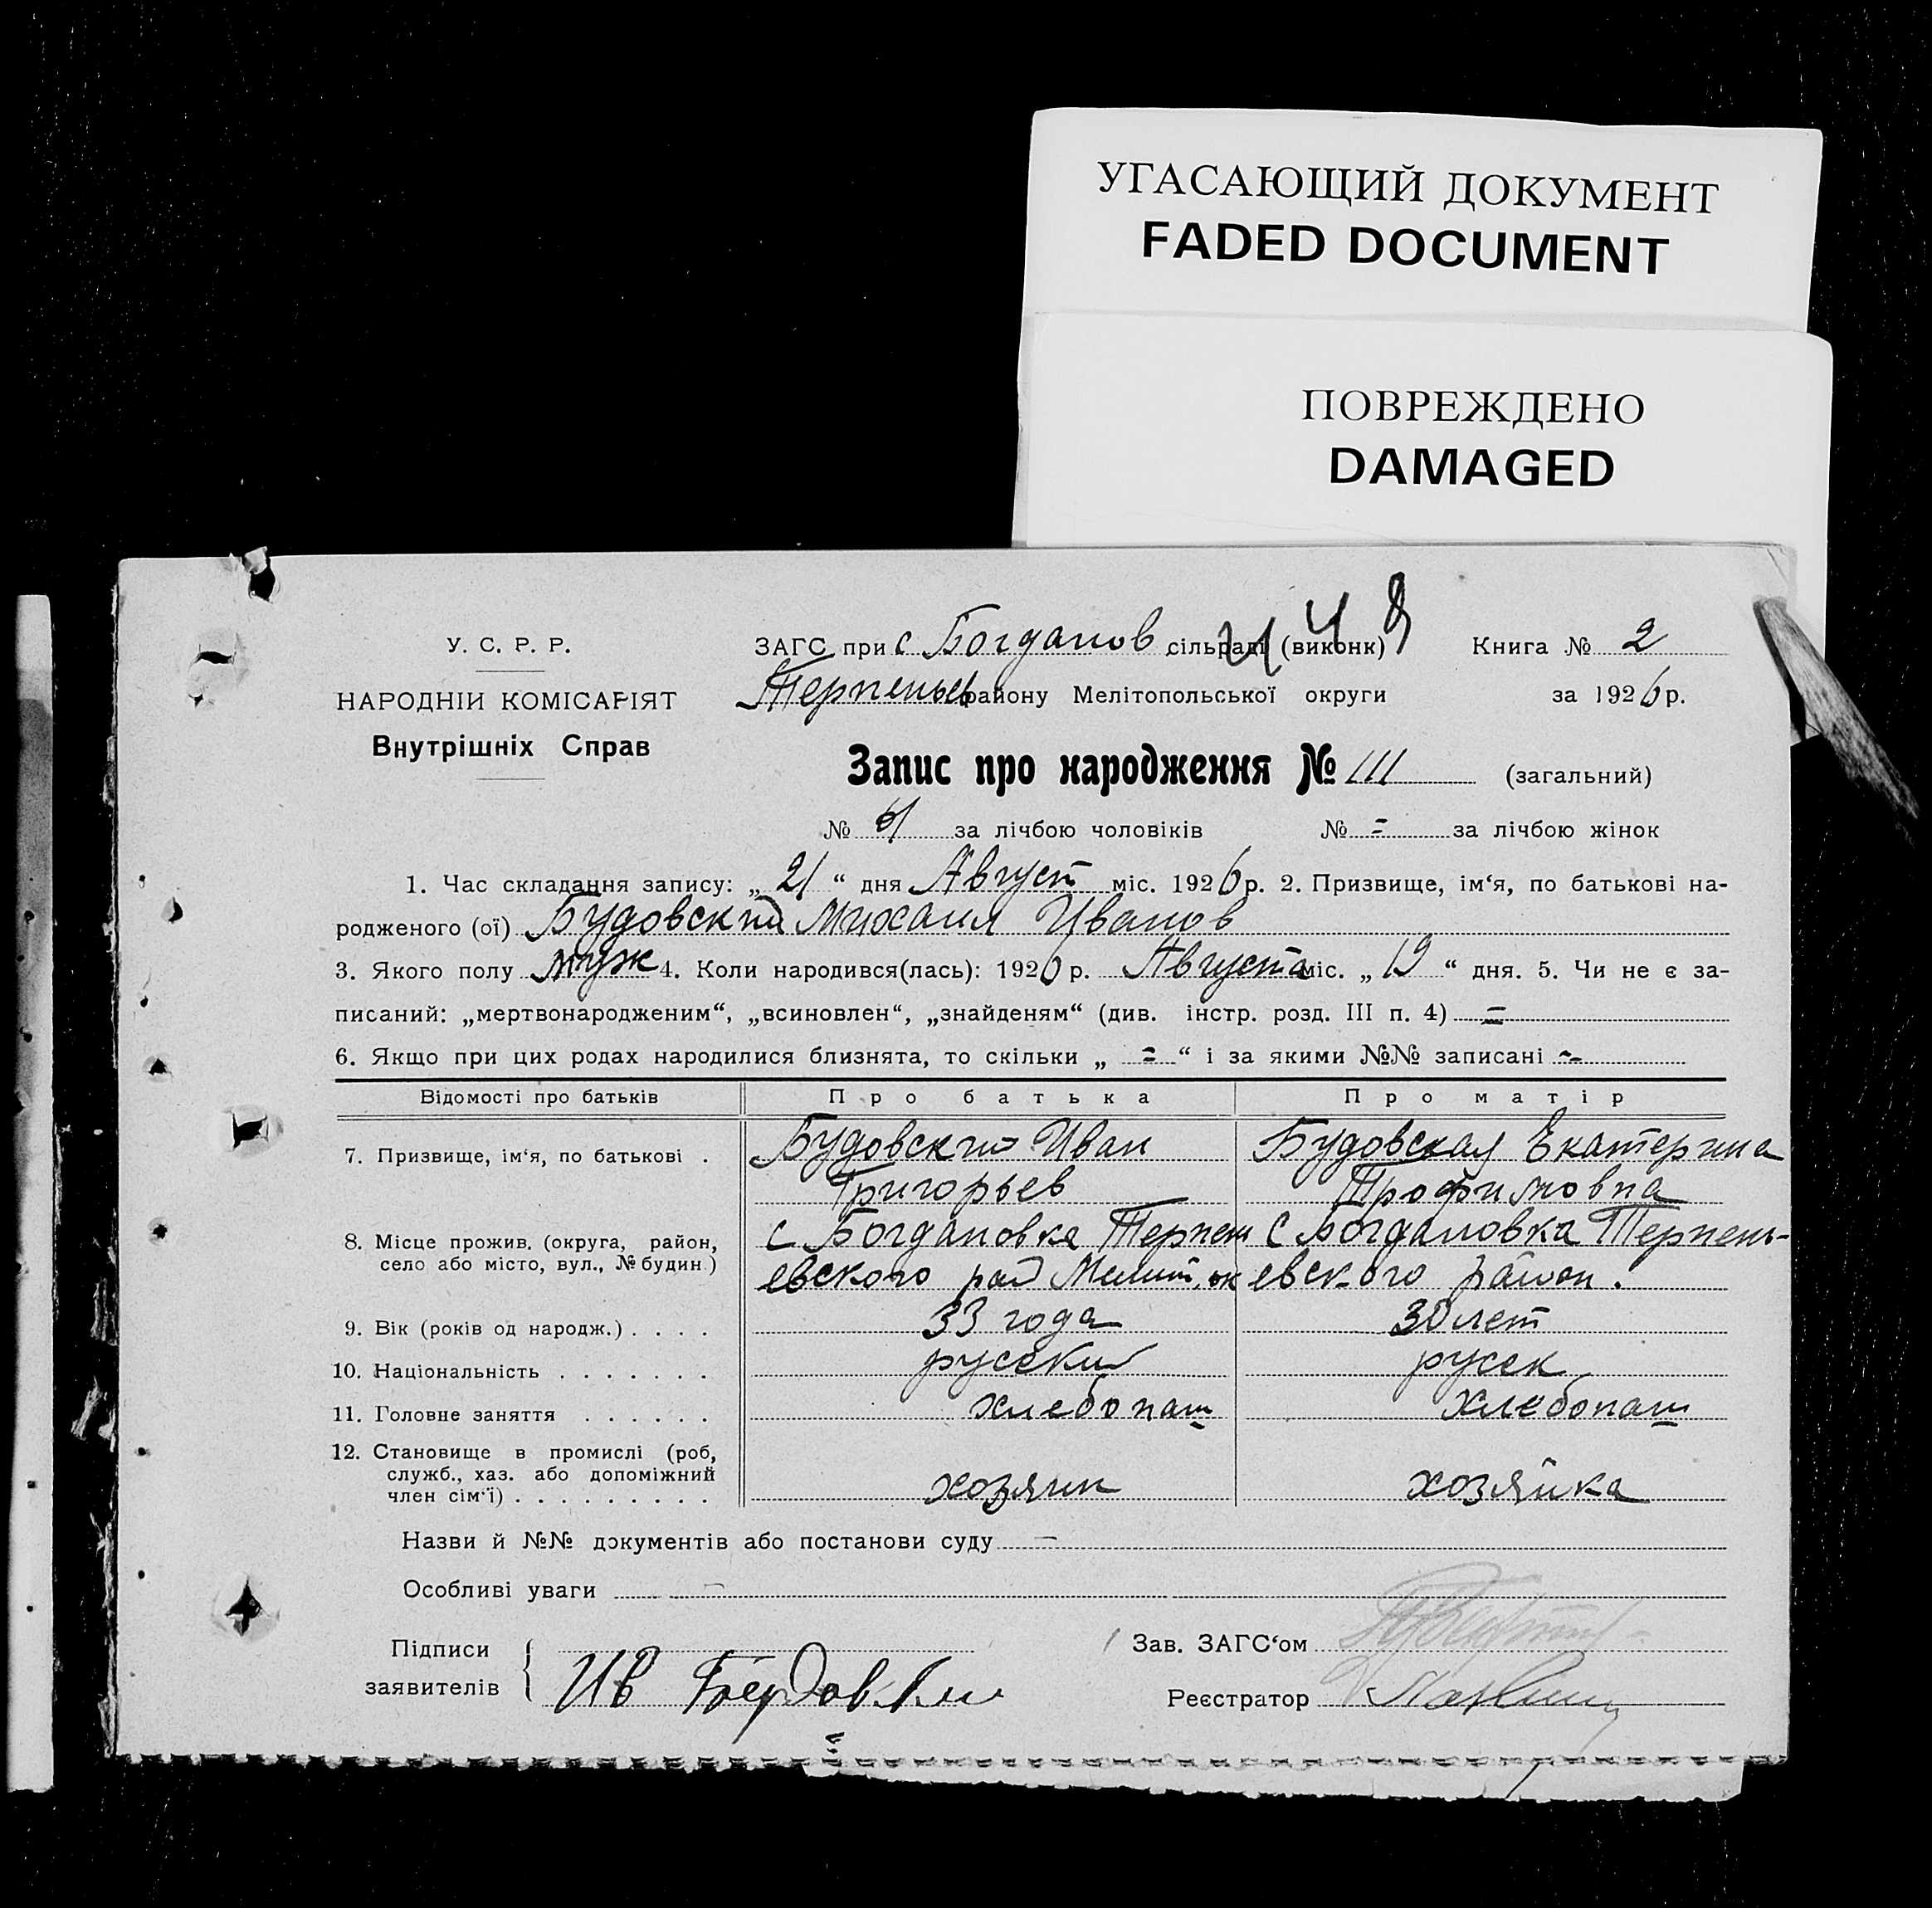 УГАСАЮЩИЙ ДОКУМЕНТ
FADED DOCUMENT
ПОВРЕЖДЕНО
DAMAGED
У. С. Р. Р.
НАРОДНІЙ КОМІСАРІЯТ
Внутрішніх Справ
ЗАГС при с Богданов сільраді (виконк) Книга № 2
Терпеньев району Мелітопольської округи за 1926 р.
Запис про народження № 111 (загальний)
№ 61 за лічбою чоловіків № = за лічбою жінок
1. Час складання запису: „ 21 “ дня Август міс. 1926 р. 2. Призвище, ім‘я, по батькові на-
родженого (ої) Будовский Михаил Иванов
3. Якого полу муж 4. Коли народився(лась): 1926 р. Августа міс. „ 19 “ дня. 5. Чи не є за-
писаний: „мертвонародженим“, „всиновлен“, „знайденям“ (див. інстр. розд. III п. 4) =
6. Якщо при цих родах народилися близнята, то скільки „ = “ і за якими №№ записані =
Відомості про батьків Про батька Про матір
7. Призвище, ім‘я, по батькові . Будовский Иван Будовская Екатерина
Григорьев Трофимовна
8. Місце прожив. (округа, район, с Богдановка Терпен с Богдановка Терпень-
село або місто, вул., № будин.) евского рай Мелит. ок евского район.
9. Вік (років од народж.) . . . . 33 года 30 лет
10. Національність . . . . . . . русский русск
11. Головне заняття . . . . . . хлебопаш хлебопаш
12. Становище в промислі (роб,
служб., хаз. або допоміжний
член сім‘ї) . . . . . . . . . хозяин хозяйка
Назви й №№ документів або постанови суду —
Особливі уваги —
Підписи
заявителів Ив Будовский
Зав. ЗАГС‘ом
Реєстратор